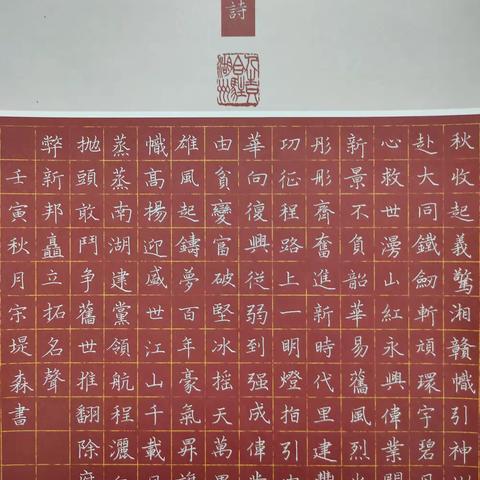 詩
秋收起義驚湘贛幟引神
赴大同鐵劍斬頑環宇碧
心救世漫山紅永興偉業開
新景不負韶華易舊風烈
彤彤齊奮進新時代里建豐
功征程路上一明燈指引
華向復興從弱到强成偉業
由貧變富破堅冰摇天萬里
雄風起鑄夢百年豪氣昇旗
幟高揚迎盛世江山千載
蒸蒸南湖建黨領航程灑
抛頭敢鬥争舊世推翻除
弊新邦矗立拓名聲
壬寅秋月宗堤森書